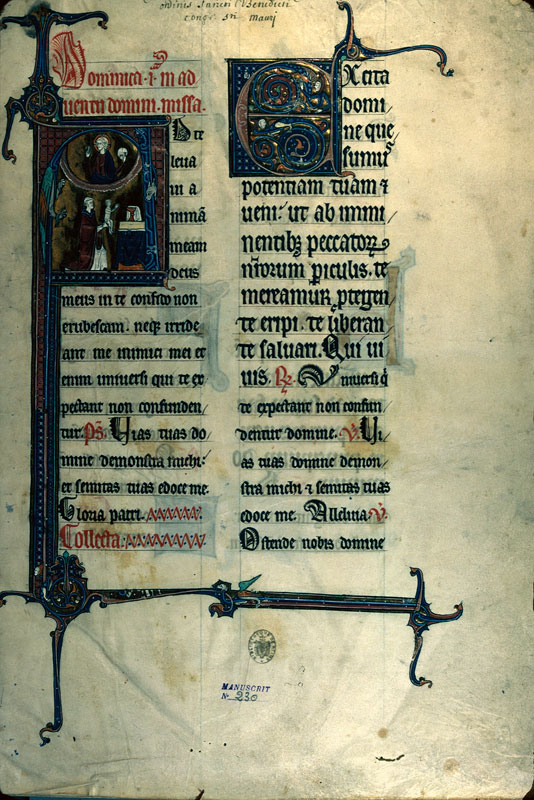 ordinis Sancti Benedicti
congr. sti Mauri
Dominica .i. in ad
uentu domini. missa.
Ad te
leuia
in a
nimā
meam
deus
meus in te confido non
erubescam. neqꝫ irride
ant me inimici mei et
enim uniuersi qui te ex/
pectant non confunden/
tur. ps. Uias tuas do/
mine demonstra michi:
et semitas tuas edoce me.
Gloria patri.
Collecta.
Excita
domi
ne que
sumꝰ
potentiam tuam ⁊
ueni: ut ab immi/
nentibꝫ peccatoꝝ
nr̄orum ꝑiculis. te
mereamur ꝓtegen/
te eripi. te liberan/
te saluari. Qui ui/
uis. ℟. Vniuersi q̇
te expectant non confun/
dentur domine. ℣. Ui/
as tuas domine demon/
stra michi ⁊ semitas tuas
edoce me. Alleluia ℣.
Ostende nobis domine
MANUSCRIT
No 230